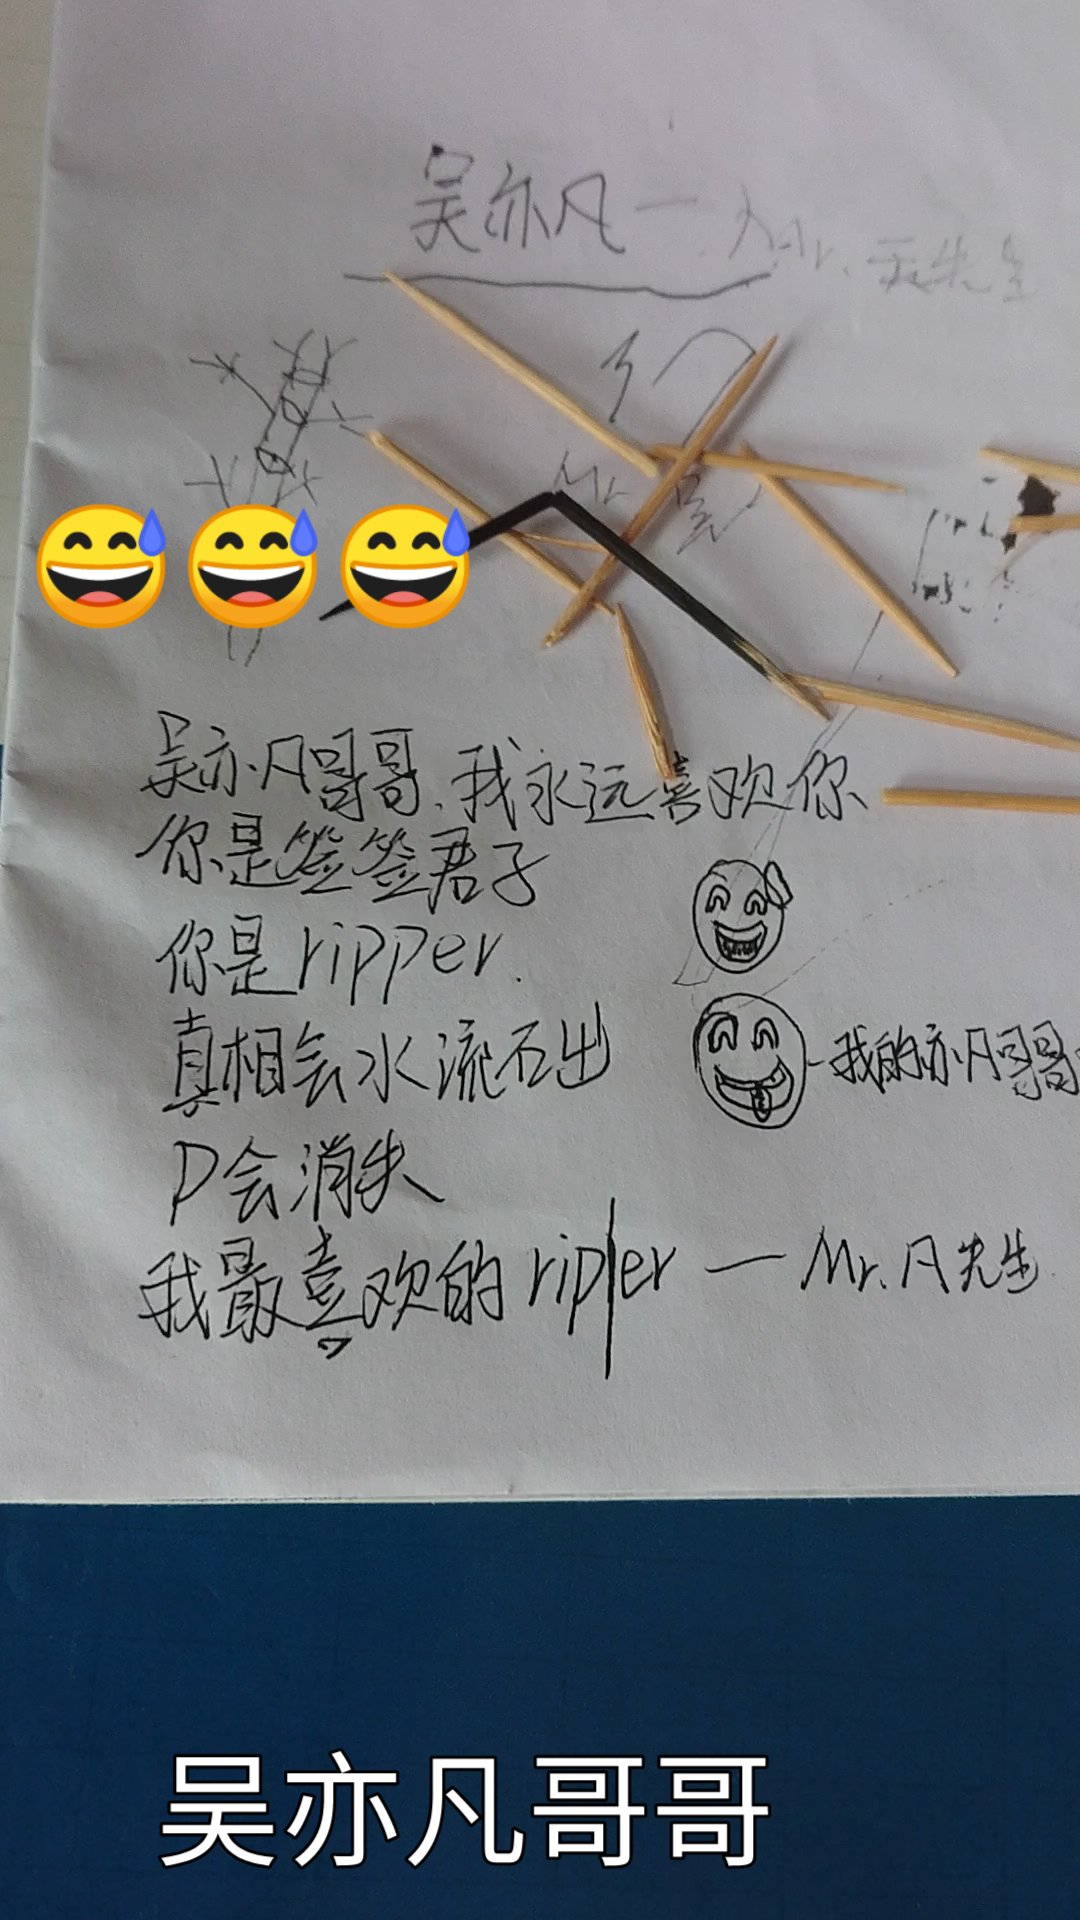 吴亦凡一
Mr.
吴亦凡哥哥.我永远喜欢你
你是签签君子
你是ripper.
真相会水流石出
-我的亦凡哥哥
P会消失
我最喜欢的ripper — Mr.A先生.
吴亦凡哥哥